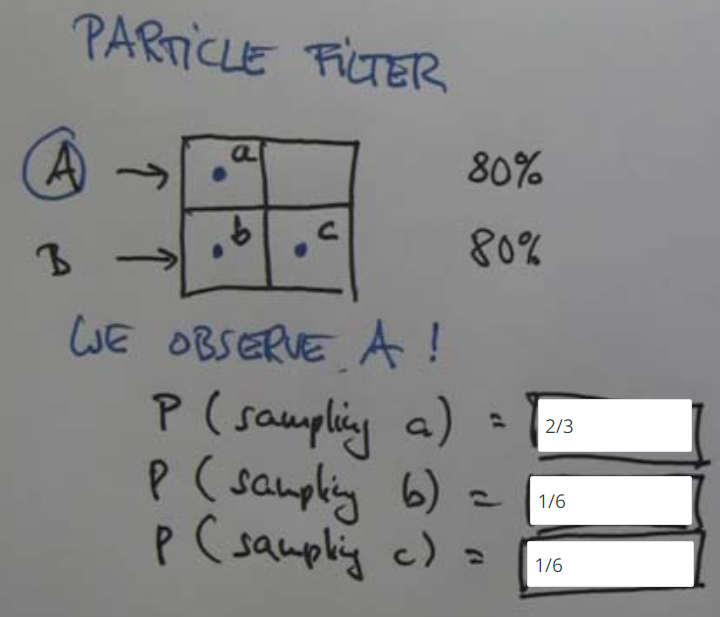 PARTICLE FILTER
A → a 80%
B → b c 80%
WE OBSERVE A!
P (sampling a) = 2/3
P (sampling b) = 1/6
P (sampling c) = 1/6